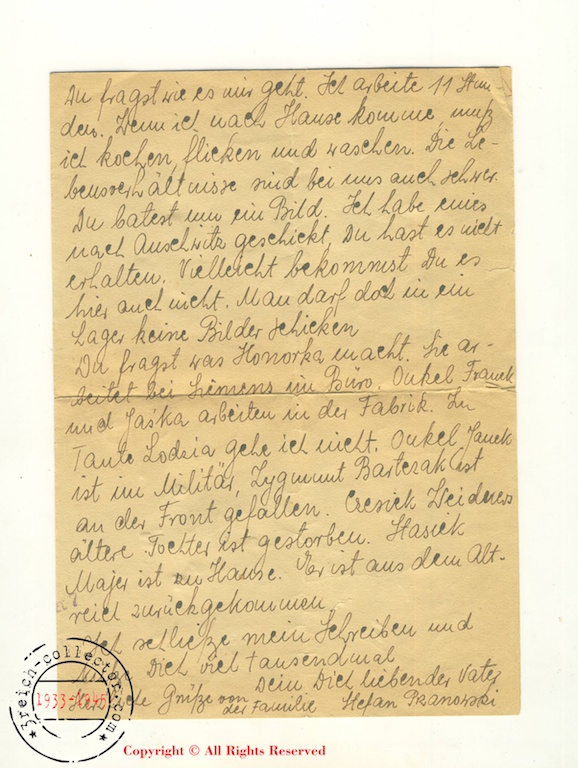 Du fragst wie es mir geht. Ich arbeite 11 Stun
den. Wenn ich nach Hause komme, muß
ich kochen, flicken und waschen. Die Le-
bensverhältnisse sind bei uns auch schwer.
Du batest um ein Bild. Ich habe eines
nach Auschwitz geschickt, Du hast es nicht
erhalten. Vielleicht bekommst Du es
hier auch nicht. Man darf doch in ein
Lager keine Bilder schicken
Du fragst was Honorka macht. Sie ar-
beitet bei Siemens im Büro. Onkel Franek
und Jaśka arbeiten in der Fabrik. Zu
Tante Lodzia gehe ich nicht. Onkel Janek
ist im Militär, Zygmunt Barterak ist
an der Front gefallen. Czesiek
ältere Tochter ist gestorben. Stasiek
Majer ist zu Hause. Er ist aus dem Alt-
reich zurückgekommen.
Ich schließe mein Schreiben und
Dich viel tausendmal
Dein Dich liebender Vater
Grüße von
der Familie Stefan
3reich-collector.com
1933-1945
Copyright © All Rights Reserved